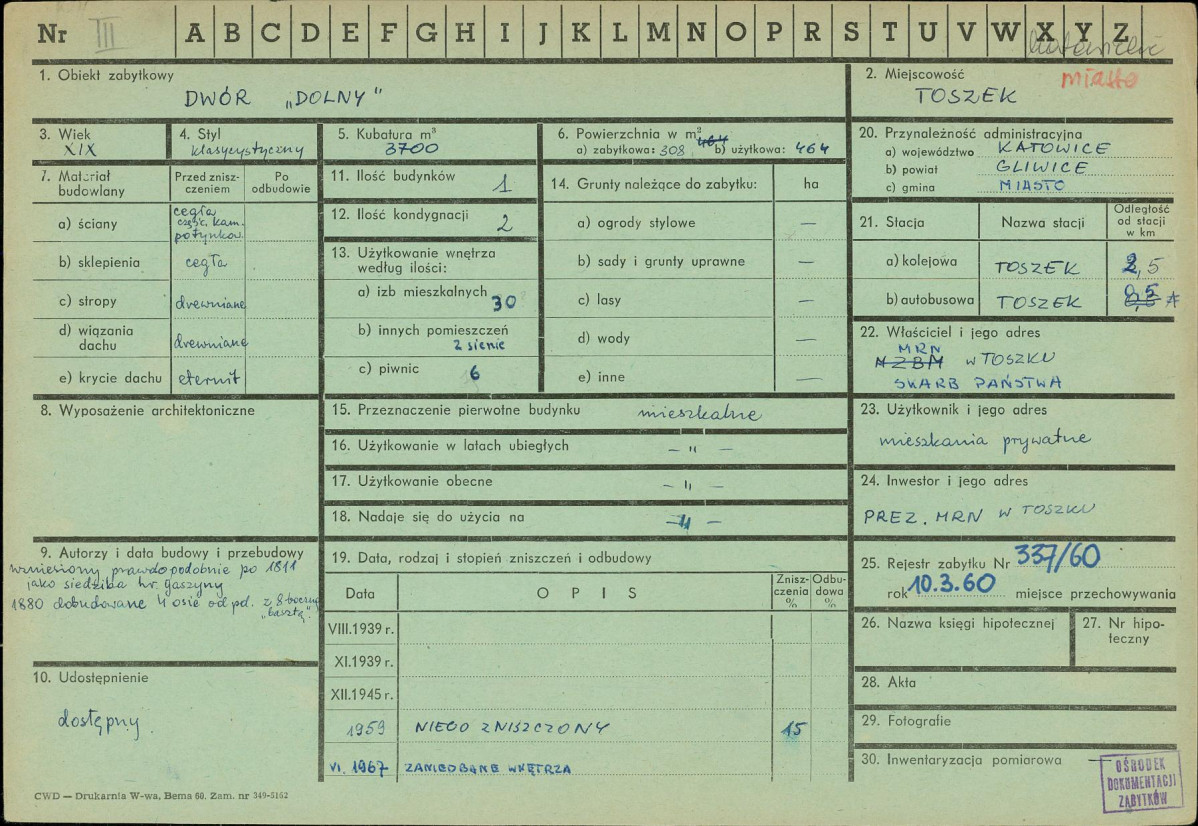 Nr III A B C D E F G H I J K L M N O P R S T U V W X Y Z
miasto
1. Obiekt zabytkowy
DWÓR „DOLNY"
2. Miejscowość
TOSZEK
3. Wiek
XIX
4. Styl
klasycystyczny
5. Kubatura m³
3700
6. Powierzchnia w m²
a) zabytkowa: 308 b) użytkowa: 464
20. Przynależność administracyjna
a) województwo KATOWICE
b) powiat GLIWICE
c) gmina MIASTO
7. Materiał budowlany
Przed zniszczeniem
Po odbudowie
a) ściany cegła
częśc. kam.
potynkow.
b) sklepienia cegła
c) stropy drewniane
d) wiązania dachu drewniane
e) krycie dachu eternit
11. Ilość budynków 1
12. Ilość kondygnacji 2
13. Użytkowanie wnętrza
według ilości:
a) izb mieszkalnych 30
b) innych pomieszczeń
2 sienie
c) piwnic 6
14. Grunty należące do zabytku: ha
a) ogrody stylowe —
b) sady i grunty uprawne —
c) lasy —
d) wody —
e) inne —
21. Stacja Nazwa stacji Odległość od stacji w km
a) kolejowa TOSZEK 2,5
b) autobusowa TOSZEK 0,5
22. Właściciel i jego adres
MRN
MZBM w TOSZKU
SKARB PAŃSTWA
8. Wyposażenie architektoniczne
15. Przeznaczenie pierwotne budynku mieszkalne
16. Użytkowanie w latach ubiegłych — " —
17. Użytkowanie obecne — " —
18. Nadaje się do użycia na — " —
23. Użytkownik i jego adres
mieszkania prywatne
24. Inwestor i jego adres
PREZ. MRN w TOSZKU
9. Autorzy i data budowy i przebudowy
wzniesiony prawdopodobnie po 1811
jako siedziba hr. Gaszyny
1880 dobudowane 4 osie od pd. z 8-boczną
„basztą"
19. Data, rodzaj i stopień zniszczeń i odbudowy
Data OPIS Zniszczenia % Odbudowa %
VIII.1939 r.
XI.1939 r.
XII.1945 r.
1959 NIECO ZNISZCZONY 15
VI. 1967 ZANIEDBANE WNĘTRZA
25. Rejestr zabytku Nr 337/60
rok 10.3.60 miejsce przechowywania
26. Nazwa księgi hipotecznej
27. Nr hipoteczny
28. Akta
29. Fotografie
30. Inwentaryzacja pomiarowa —
10. Udostępnienie
dostępny
CWD — Drukarnia W-wa, Bema 60. Zam. nr 349-5162
OŚRODEK
DOKUMENTACJI
ZABYTKÓW